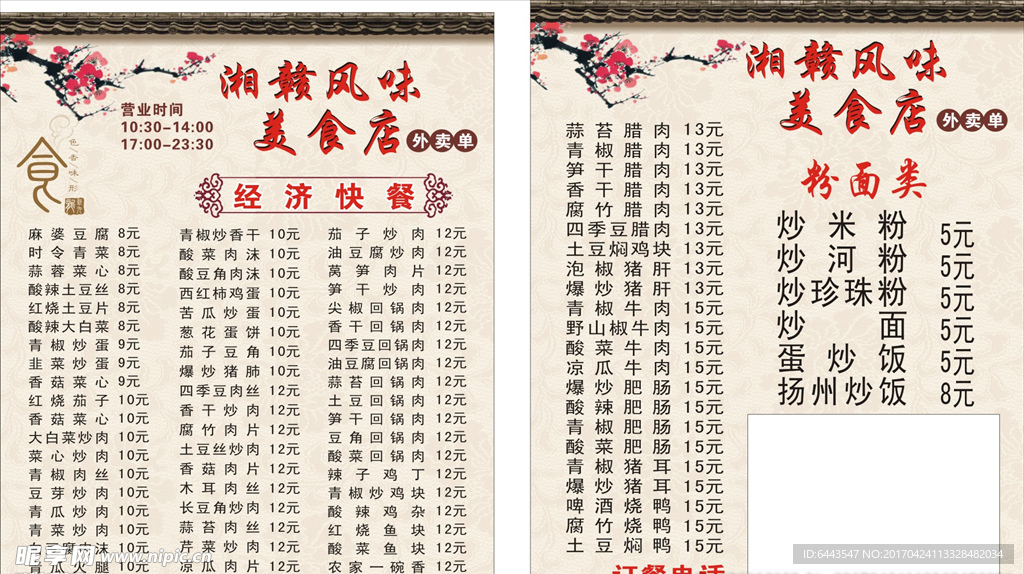 湘赣风味
美食店
外卖单
营业时间
10:30-14:00
17:00-23:30
食
色/香/味/形
经济快餐
麻婆豆腐 8元
时令青菜 8元
蒜蓉菜心 8元
酸辣土豆丝 8元
红烧土豆片 8元
酸辣大白菜 8元
青椒炒蛋 9元
韭菜炒蛋 9元
香菇菜心 9元
红烧茄子 10元
香菇菜心 10元
大白菜炒肉 10元
菜心炒肉 10元
青椒肉丝 10元
豆芽炒肉 10元
青瓜炒肉 10元
青菜炒肉 10元
青瓜火腿 10元
青椒炒香干 10元
酸菜肉沫 10元
酸豆角肉沫 10元
西红柿鸡蛋 10元
苦瓜炒蛋 10元
葱花蛋饼 10元
茄子豆角 10元
爆炒猪肺 10元
四季豆肉丝 12元
香干炒肉 12元
腐竹肉片 12元
土豆丝炒肉 12元
香菇肉片 12元
木耳肉丝 12元
长豆角炒肉 12元
蒜苔肉丝 12元
芹菜炒肉 12元
凉瓜肉片 12元
茄子炒肉 12元
油豆腐炒肉 12元
莴笋肉片 12元
笋干炒肉 12元
尖椒回锅肉 12元
香干回锅肉 12元
四季豆回锅肉 12元
油豆腐回锅肉 12元
蒜苔回锅肉 12元
土豆回锅肉 12元
笋干回锅肉 12元
豆角回锅肉 12元
酸菜回锅肉 12元
辣子鸡丁 12元
青椒炒鸡块 12元
酸辣鸡杂 12元
红烧鱼块 12元
酸菜鱼块 12元
农家一碗香 12元
湘赣风味
美食店
外卖单
蒜苔腊肉 13元
青椒腊肉 13元
笋干腊肉 13元
香干腊肉 13元
腐竹腊肉 13元
四季豆腊肉 13元
土豆焖鸡块 13元
泡椒猪肝 13元
爆炒猪肝 13元
青椒牛肉 15元
野山椒牛肉 15元
酸菜牛肉 15元
凉瓜牛肉 15元
爆炒肥肠 15元
酸辣肥肠 15元
青椒肥肠 15元
酸菜肥肠 15元
青椒猪耳 15元
爆炒猪耳 15元
啤酒烧鸭 15元
腐竹烧鸭 15元
土豆焖鸭 15元
粉面类
炒米粉 5元
炒河粉 5元
炒珍珠粉 5元
炒面 5元
蛋炒饭 5元
扬州炒饭 8元
订餐电话
昵享网 www.nipic.cn
ID:6443547 NO:20170424113328482034